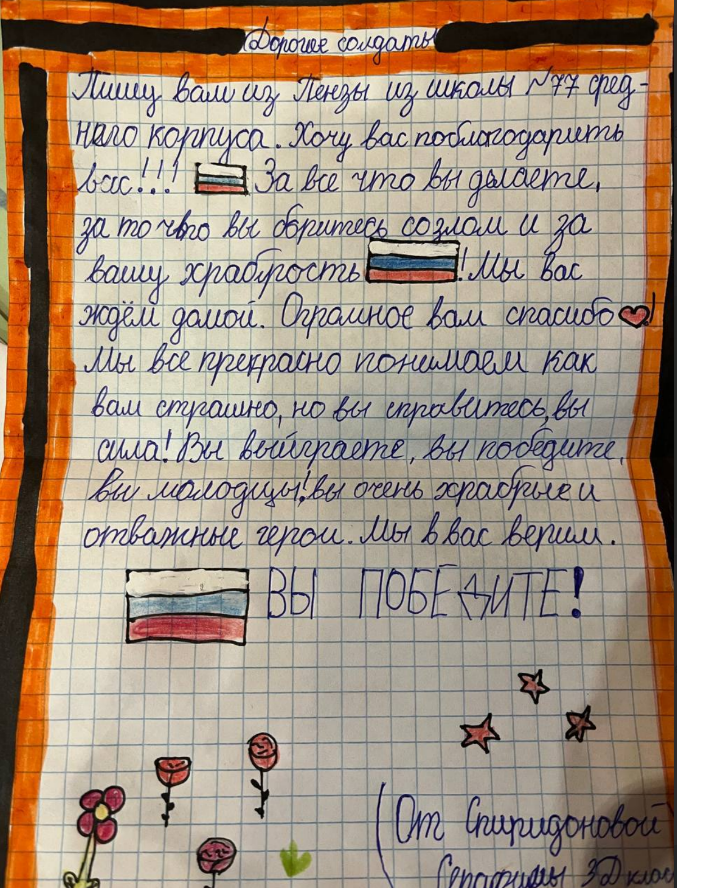 Дорогие солдаты
Пишу вам из Пензы из школы №77 сред-
него корпуса. Хочу вас поблогодарить
вас!!! За все что вы делаете,
за то что вы боритесь со злом и за
вашу храбрость! Мы вас
ждём домой. Огромное вам спасибо!
Мы все прекрасно понимаем как
вам страшно, но вы справитесь, вы
сила! Вы выйграете, вы победите,
вы молодцы! вы очень храбрые и
отважные герои. Мы в вас верим.
ВЫ ПОБЕДИТЕ!
(От Спиридоновой
Серафимы 3Д клас